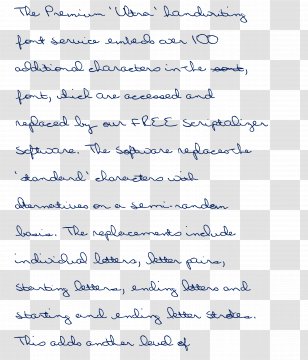 The Premium 'Ultra' handwriting
font service embeds over 100
additional characters in the font,
font, which are accessed and
replaced by our FREE Scriptalizer
Software. The Software replaces the
'standard' characters with
alternatives on a semi-random
basis. The replacements include
individual letters, letter pairs,
starting letters, ending letters and
starting and ending letter strokes.
This adds another level of